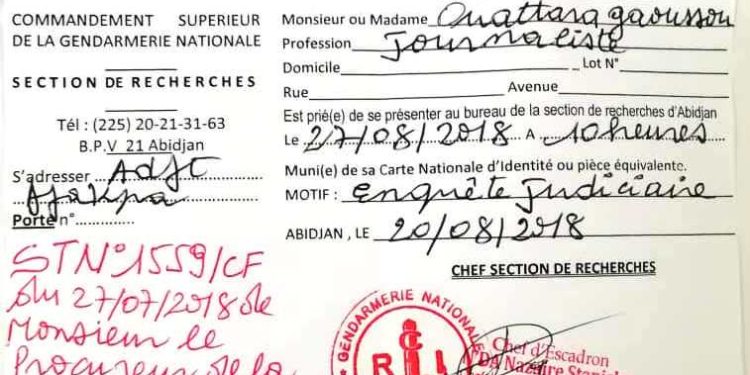 COMMANDEMENT SUPERIEUR
DE LA GENDARMERIE NATIONALE
SECTION DE RECHERCHES
Tél : (225) 20-21-31-63
B.P.V 21 Abidjan
S'adresser Adjt
Ajakpa
Porte n°
STN°1559/CF
du 27/07/2018 de
Monsieur le
Procureur de la
Monsieur ou Madame Ouattara gaoussou
Profession Journaliste
Domicile Lot N°
Rue Avenue
Est prié(e) de se présenter au bureau de la section de recherches d'Abidjan
Le 27/08/2018 A 10heures
Muni(e) de sa Carte Nationale d'Identité ou pièce équivalente.
MOTIF : enquête judiciaire
ABIDJAN , LE 20/08/2018
CHEF SECTION DE RECHERCHES
GENDARMERIE NATIONALE
R C I
Chef d'Escadron